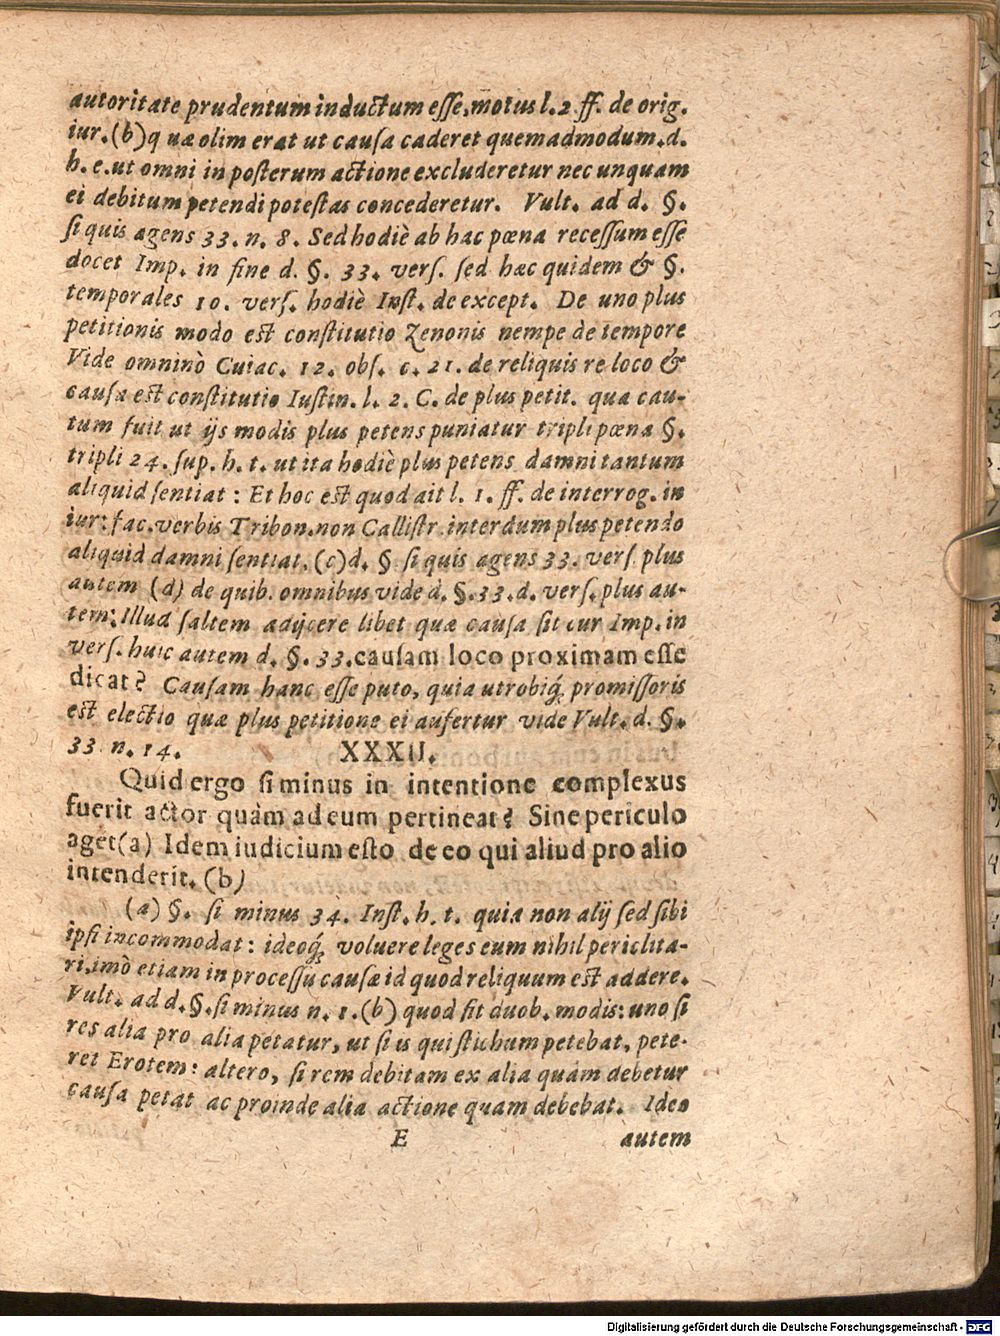 autoritate prudentum inductum esse, motus l. 2. ff. de orig.
iur. (b) quæ olim erat ut causa caderet quemadmodum. d.
h. e. ut omni in posterum actione excluderetur nec unquam
ei debitum petendi potestas concederetur. Vult. ad d. §.
si quis agens 33. n. 8. Sed hodiè ab hac pœna recessum esse
docet Imp. in fine d. §. 33. vers. sed hæc quidem & §.
temporales 10. vers. hodiè Inst. de except. De uno plus
petitionis modo est constitutio Zenonis nempe de tempore
Vide omninò Cuiac. 12. obs. c. 21. de reliquis re loco &
causa est constitutio Iustin. l. 2. C. de plus petit. qua cau-
tum fuit ut ijs modis plus petens puniatur tripli pœna §.
tripli 24. sup. h. t. ut ita hodiè plus petens damni tantum
aliquid sentiat: Et hoc est quod ait l. 1. ff. de interrog. in
iur: fac. verbis Tribon. non Callistr. interdum plus petendo
aliquid damni sentiat. (c) d. § si quis agens 33. vers. plus
autem (d) de quib. omnibus vide d. §. 33. d. vers. plus au-
tem: Illud saltem adijcere libet quæ causa sit cur Imp. in
vers. huic autem d. §. 33. causam loco proximam esse
dicat? Causam hanc esse puto, quia utrobiq; promissoris
est electio quæ plus petitione ei aufertur vide Vult. d. §.
33 n. 14. XXXII.
Quid ergo si minus in intentione complexus
fuerit actor quàm ad eum pertineat? Sine periculo
aget (a) Idem iudicium esto de eo qui aliud pro alio
intenderit. (b)
(a) §. si minus 34. Inst. h. t. quia non alij sed sibi
ipsi incommodat: ideoq; voluere leges eum nihil periclita-
ri, imò etiam in processu causæ id quod reliquum est addere.
Vult. ad d. §. si minus n. 1. (b) quod fit duob. modis: uno si
res alia pro alia petatur, ut si is qui stichum petebat, pete-
ret Erotem: altero, si rem debitam ex alia quàm debetur
causa petat ac proinde alia actione quam debebat. Ideo
E autem
Digitalisierung gefördert durch die Deutsche Forschungsgemeinschaft - DFG